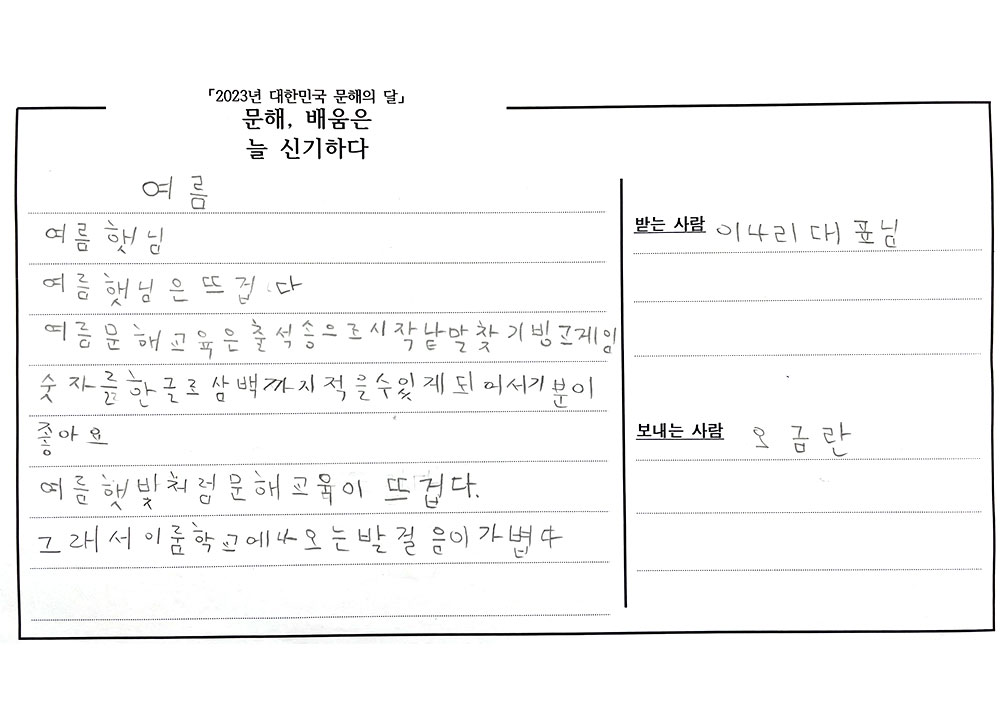 「2023년 대한민국 문해의 달」
문해, 배움은
늘 신기하다
여름
여름 햇님
여름 햇님은 뜨겁다
여름문해교육은출석송으로시작낱말찾기빙고게임
숫자를한글로삼백까지적을수있게되어서기분이
좋아요
여름햇빛처럼문해교육이 뜨겁다.
그래서이룸학교에나오는발걸음이가볍다
받는 사람 이나리대표님
보내는 사람 오금란